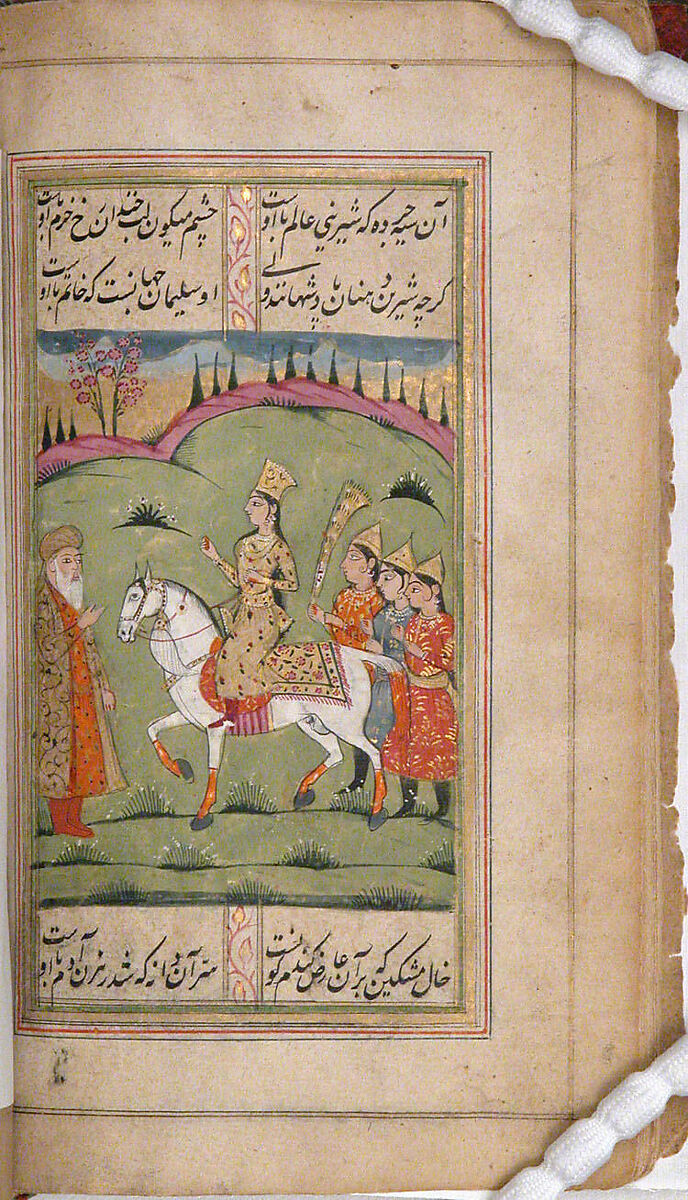 آن سیه چرده که شیرینی عالم با اوست چشم میگون لب خندان رخ خرم با اوست
گرچه شیرین دهنان پادشهانند ولی او سلیمان جهانست که خاتم با اوست
خال مشکین که بر آن عارض گندم گونست سر آن دانه که شد رهزن آدم با اوست